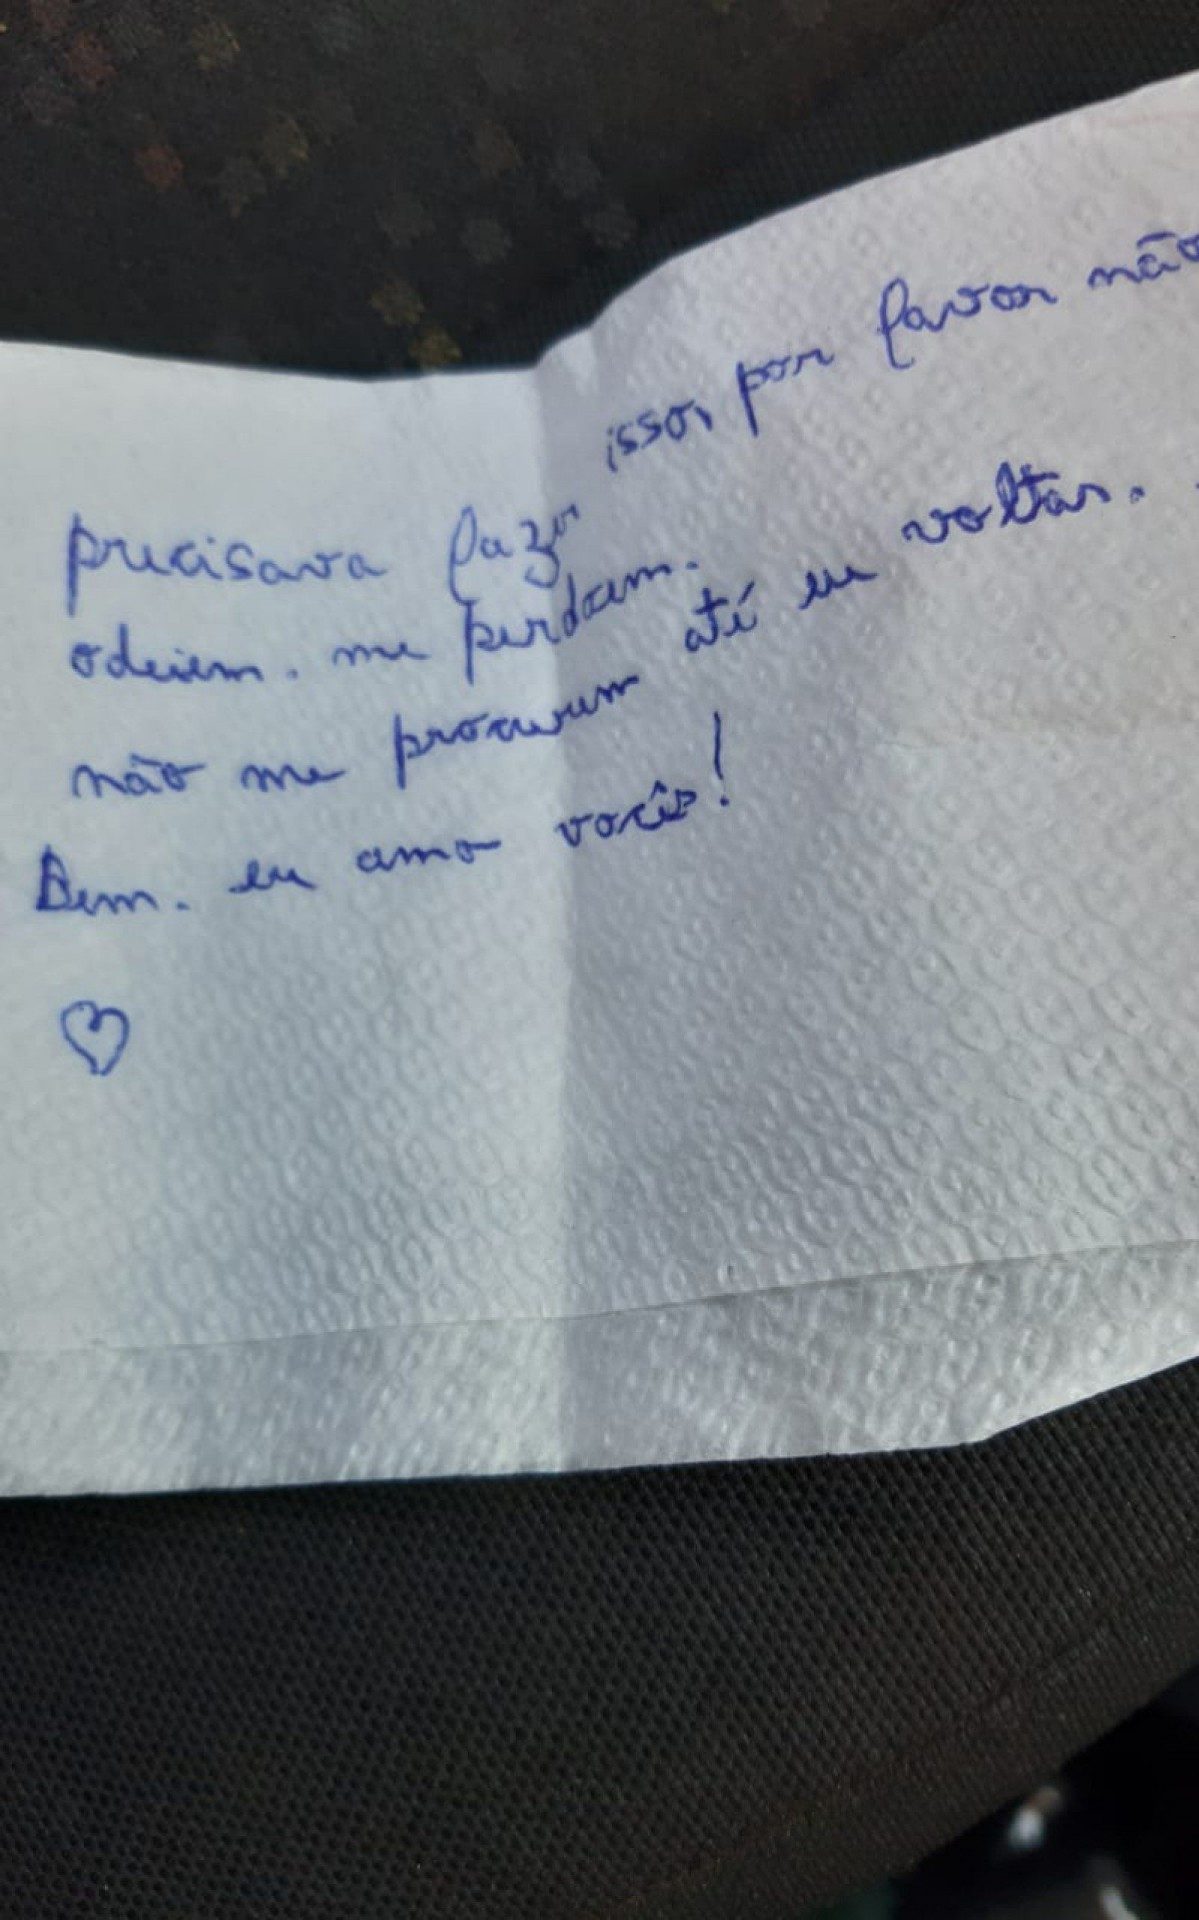 precisava fazer isso, por favor não
odeiem. me perdoem.
não me procurem até eu voltar.
Bem. eu amo vocês!